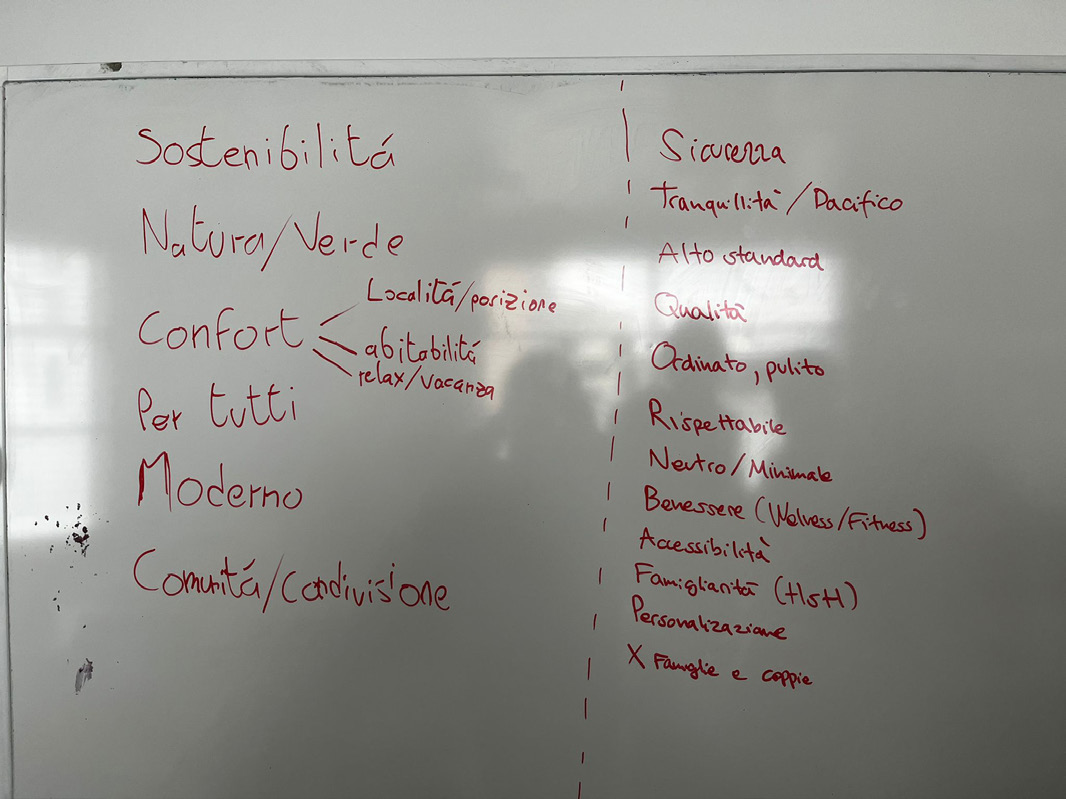 Sostenibilitá
Natura/Verde
Confort
Localitá/posizione
abitabilitá
relax/vacanza
Per tutti
Moderno
Comunitá/Condivisione
Sicurezza
Tranquillità/Pacifico
Alto standard
Qualità
Ordinato, pulito
Rispettabile
Neutro/Minimale
Benessere (Welness/Fitness)
Accessibilità
Famigliarità (HsH)
Personalizazione
X Famiglie e coppie